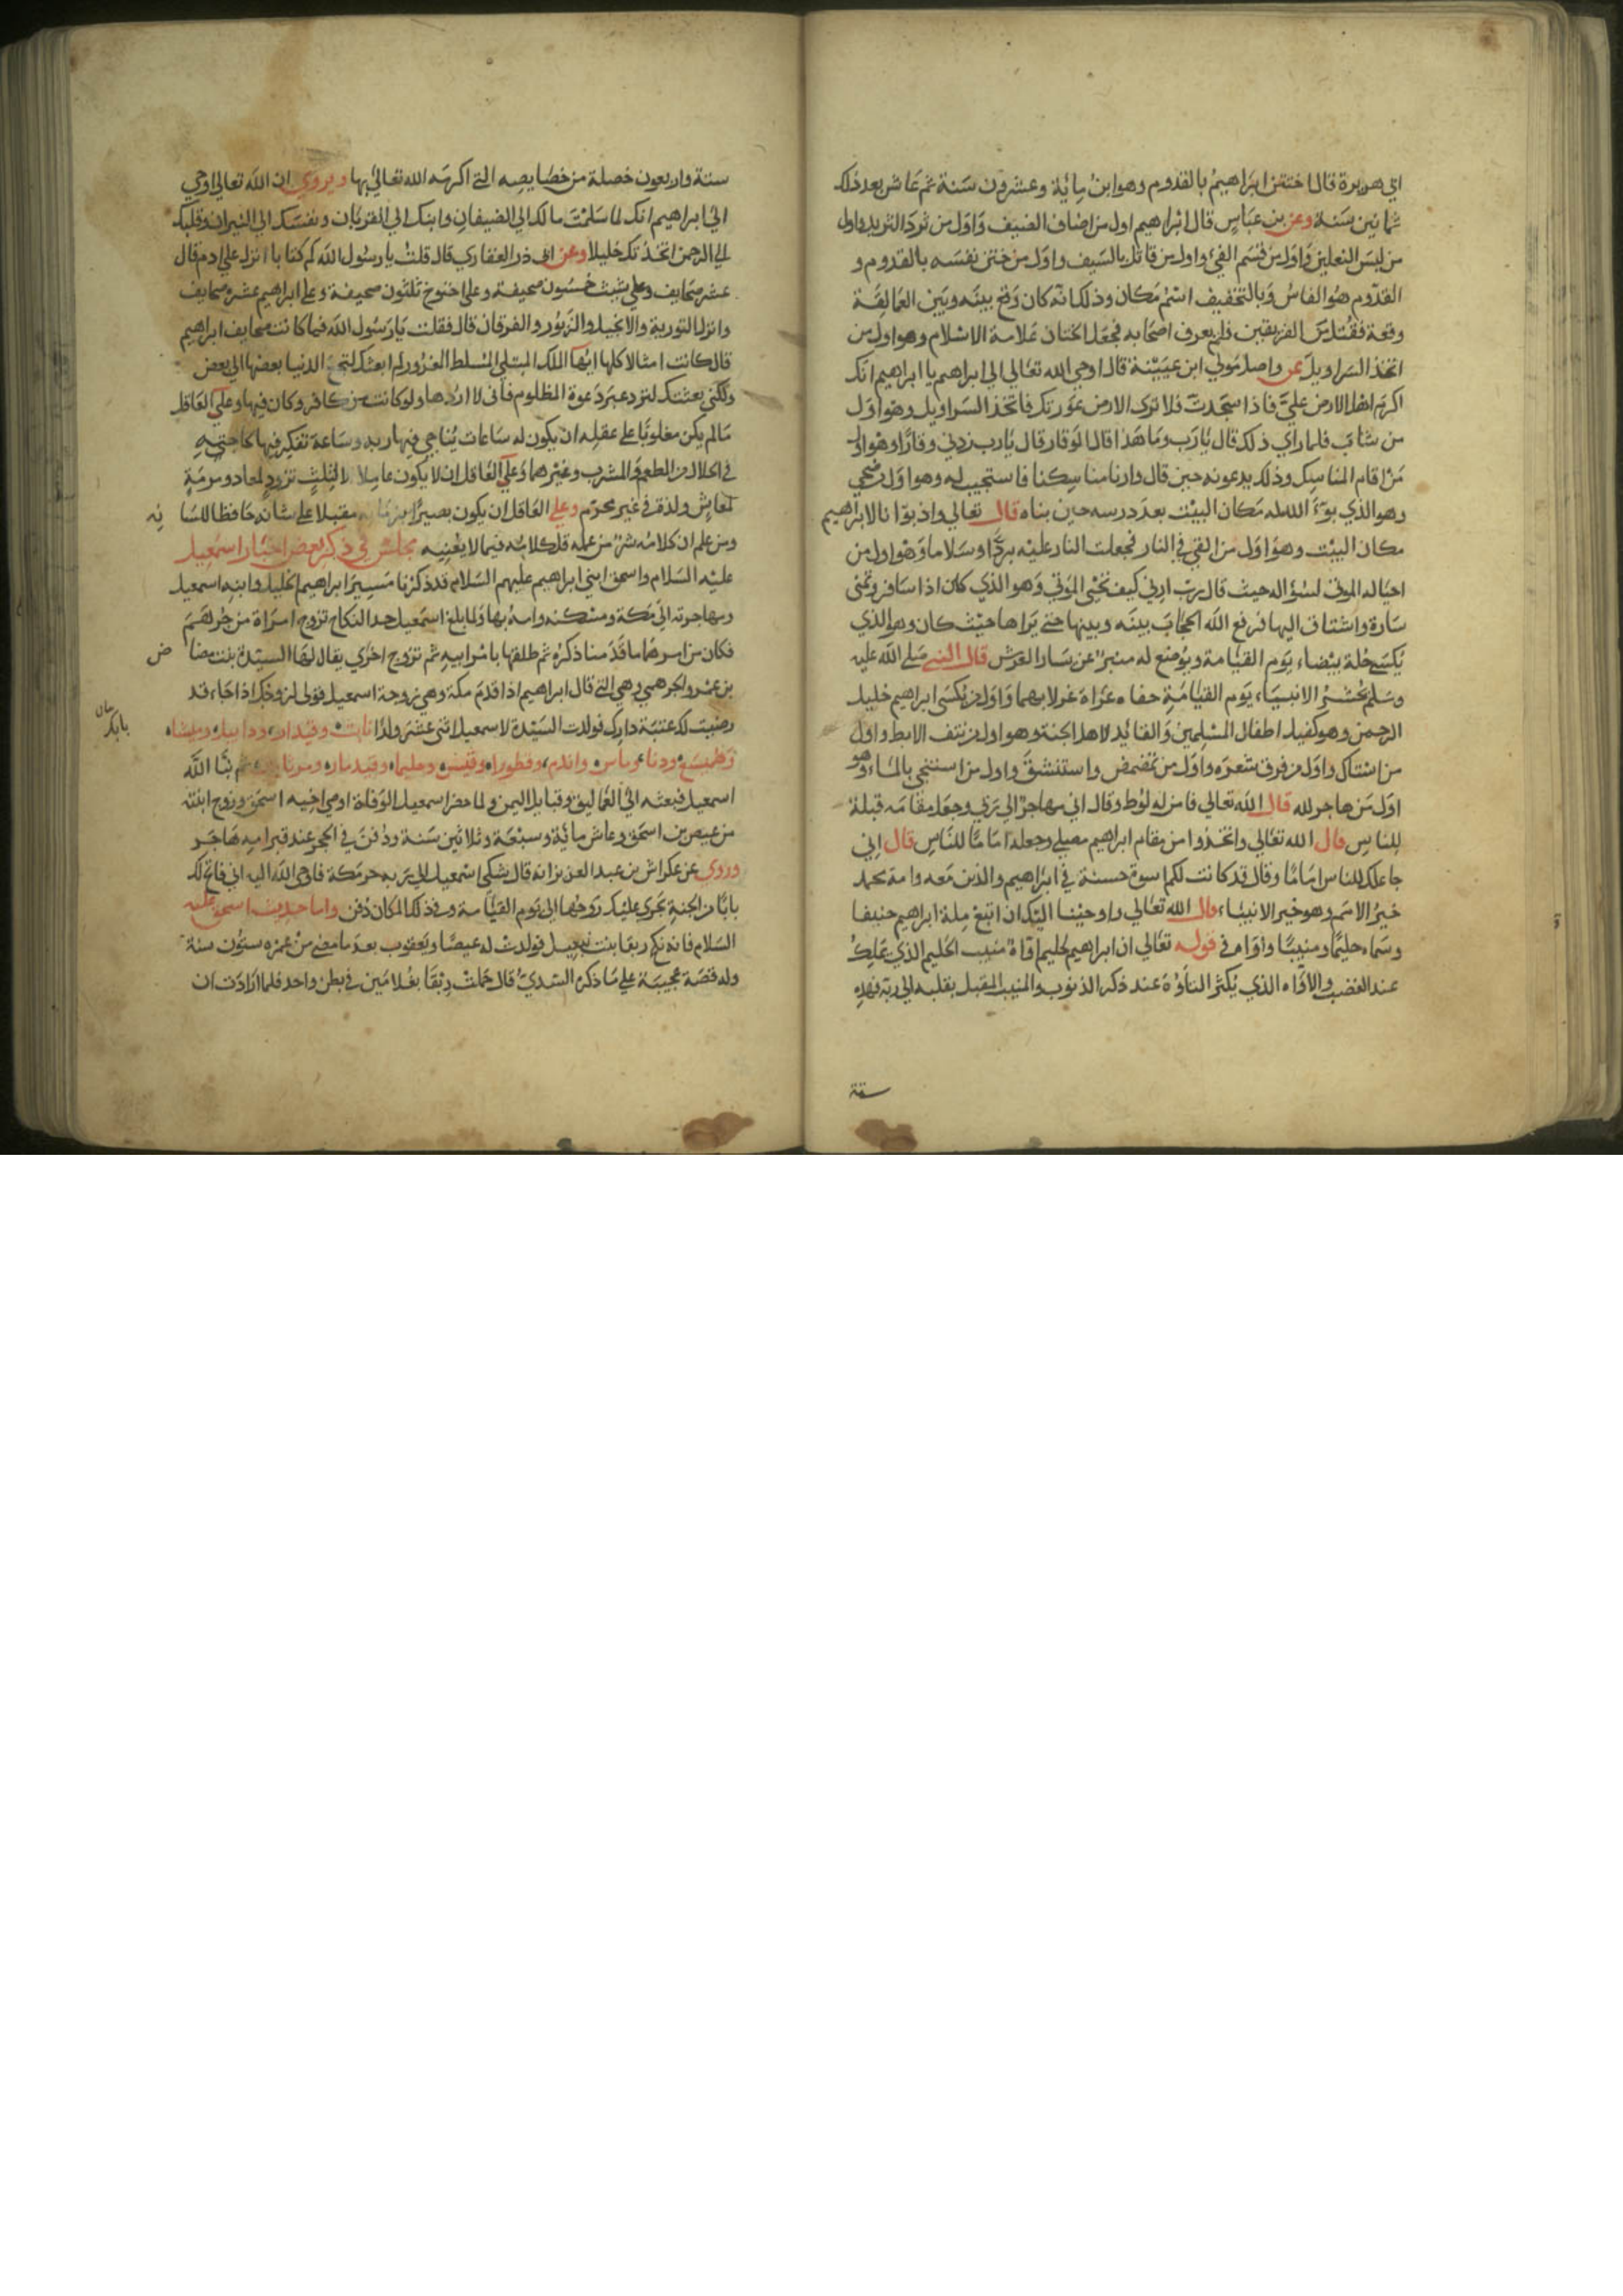 ابي هريرة قال اختتن ابراهيمُ بالقدوم وهو ابنُ مِائة وعشرون سَنة ثم عَاش بعد ذلك
ثمانِين سَنة وعن بن عبَاسٍ قال ابْراهيم اول من اضاف الضيف وَاوَل من ثردَ الثريد واول
من لبسَ النعلين وَاوَل من قسَم الفيء واول من قاتل بالسَيف واوَل من ختن نفسَه بالقدوم و
القدّوم هُوَ الفاسُ وَبالتخفيف اسْم مَكان وذلك انه كان وَقع بينَه وبَين العمَالِقة
وقعة فقُتل من الفريقين فلم يعرف اصْحَابه فجعَل الختان عَلامة الاسْلام وهو اول من
اتخذ السَراويلَ عن واصل مَولي ابن عيَيْنة قال اوحي الله تعَالي الي ابراهيم يا ابراهيم انك
اكرَم اهل الارض عليَّ فاذا سجَدتَ فلا تري الارض عَورَتك فاتخذ السَراويل وهوَ اوَل
من شابَ فلما راي ذلك قال يَارَب ومَا هَذا قال الوَقار قال يَارب زدني وقارًا وهو اول
مَن اقام المناسِك وذلك بدعوته حين قال وارنا منَاسِكنا فاستجيب له وهو اوَل من ضحي
وهو الذي بوّءَ الله له مَكان البيْت بعدَ درسه حين بناه قال تعَالي واذ بوّانا لابراهيم
مكان البيْت وهوَ اوَل من القيَ في النار فجعلت النار عليْه برْدًا وسَلاما وَهوَ اول من
احيَا له الموتي لسُؤاله حيث قال ربّ ارني كيف تحْيي الموْتي وَهو الذي كان اذا سَافر وتمَني
سَارة واشتاق اليها فرفع الله الحجَابَ بينَه وبينها حتي يَراها حيْث كان وهو الذي
يُكسَي حُلة بيْضاء يَوم القيَامة ويُوضع له منبَرٌ عن يَسَار العَرش قال النبي صَلي الله عليه
وسَلم يُحْشَرُ الانبيَاء يَوم القيَامَةِ حفاه عرَاة غرلا بهما وَاوَل من يُكسَي ابراهيم خليل
الرحمن وهو كفيل اطفال المسْلِمينَ وَالقائد لاهل الجنة وهو اول من نتف الابط واول
من اسْتاك واوَل من فرق شعرَه واوَل من تمَضمض واستنشقَ واول من استنجي بالمَاء وهو
اوَل مَن هاجر لله قال الله تعالي فامن له لوُط وقال اني مهاجرٌ الي رَبي وجعَل مقامَه قبلة
للناسِ قال الله تعَالي واتخذوا من مقام ابراهيم مصلي وجعله امَامًا للنَاسِ قال اني
جاعلك للناس امَامًا وقال قد كانت لكم اسوة حسنة في ابْراهيم والذين مَعه وامة محمد
خيرُ الامَم وهو خير الانبيَاء قال الله تعَالي واوحيْنا اليْك ان اتبع مِلة ابراهيم حنيفا
وسَماه حليْمًا ومنيبًا واوّاه في قوله تعَالي ان ابراهيم لحليم اوّاه منيب الحليم الذي يَملكُ
عند الغضب والاوّاه الذي يُكثرُ التأوّهَ عند ذكر الذنوب والمنيب المقبل بقلبه الي ربّه فهَذِهِ
ستة
ستة واربعون خصلة من خصَايصِه التي اكرمَه الله تعَالي بها ويروي ان الله تعَالي اوحي
الي ابراهيم انك لما سَلمْتَ مالك الي الضيفانِ وابنك الي القربَان ونفسَك الي النيران وقلبك
الي الرحمن اتخذتك خليلا وعن ابي ذر الغفاري قال قلتُ يا رسوُل الله كم كتابا انزل علي ادم قال
عشر صحَايف وعلي شيث خمسُون صحيفة وعلي اخنوخ ثلثون صحيفة وعلي ابراهيم عشر صحايف
وانزل التورية والانجيل والزبُور والفرقان قال فقلت يَا رَسُول الله فما كانت صحايف ابراهيم
قال كانت امثالا كلها ايُها الملك المبتلي المسَلط المغرُور لم ابعثك لتجمعَ الدنيا بعضها الي بعض
ولكني بعثتك لتردّ عني دَعوة المظلوم فاني لا اردها ولو كانت من كافر وكان فيها وعلي العَاقل
مَالم يكن مغلوبًا علي عقلِه ان يكون له سَاعات يُناجي فِيها ربه وسَاعة تفكر فيها لحاجتهِ
في الحلال من المطعم وَالمشرب وغيْرهما وَعلي العَاقل ان لا يكون عاملا الا لثِلثٍ تزود لمعاد ومرمَةٍ
لمعاشٍ ولذة في غير محرّم وعلي العَاقل ان يكون بَصيرًا بزمَانه مقبلا علي شانه حَافظا للسَا
نِه
ومن علم ان كلامَه شرٌ من عمله قل كلامُه فيما لا يعْنِيه مجلس في ذكر بعض اخبَار اسمعيل
عليْه السَلام واسحق ابني ابراهيم عليهم السَلام قد ذكرنا مَسِيرَ ابراهيم الخليل وابنِه اسمعيل
ومهاجرته الي مَكة ومسْكنه وامه بها وَلما بلغ اسمَعيل حد النكاح تزوج امرَاة من جُرهَم
فكان من امرهَا ما قدَمنا ذكرُه ثم طلقها بامْر ابيهِ ثم تزوج اخرَي يقال لهَا السيّدة بنت مضا
ض
بن عمْرو الجرهمي وهي التي قال ابراهيم اذا قدَمَ مكة وهي زوجة اسمعيل قولي لزوجك اذا جَاء قد
رضيت لك عتبَة دارك فولدت السَيّدة لاسمعيل اثني عشرَ ولدًا نابت وقيدار وادابيل وميشاه
اسمعيل فبعثه الي العمَاليق وقبايل اليمن ولما حضر اسمعيل الوَفاة اوصي اخِيه اسحق وزوج ابنته
من عيص بن اسحق وعاش مائة وسبعَة وثلاثين سَنة ودُفنَ في الحجر عند قبر امِه هَاجَر
وروي عن عكراش بن عبد العزيز انه قال شكي اسْمعيل الي رَبه حر مَكة فاوحي الله اليه اني فاتح لك
بابًا من الجنةِ يجَري عليْك رَوحُها الي يَوم القيَامة وفي ذلك المكان دُفن واما حديث اسحق عَليه
السَلام فانه نكح ربقا بنت فولدت له عيصًا ويَعقوب بعدَ ما مضي منْ عمُره ستوُن سنة
وله قصَة عجيبَة علي مَا ذكره السُديّ قال حملتْ رِبْقا بغُلامَين في بَطن واحد فلما ارَادَت ان